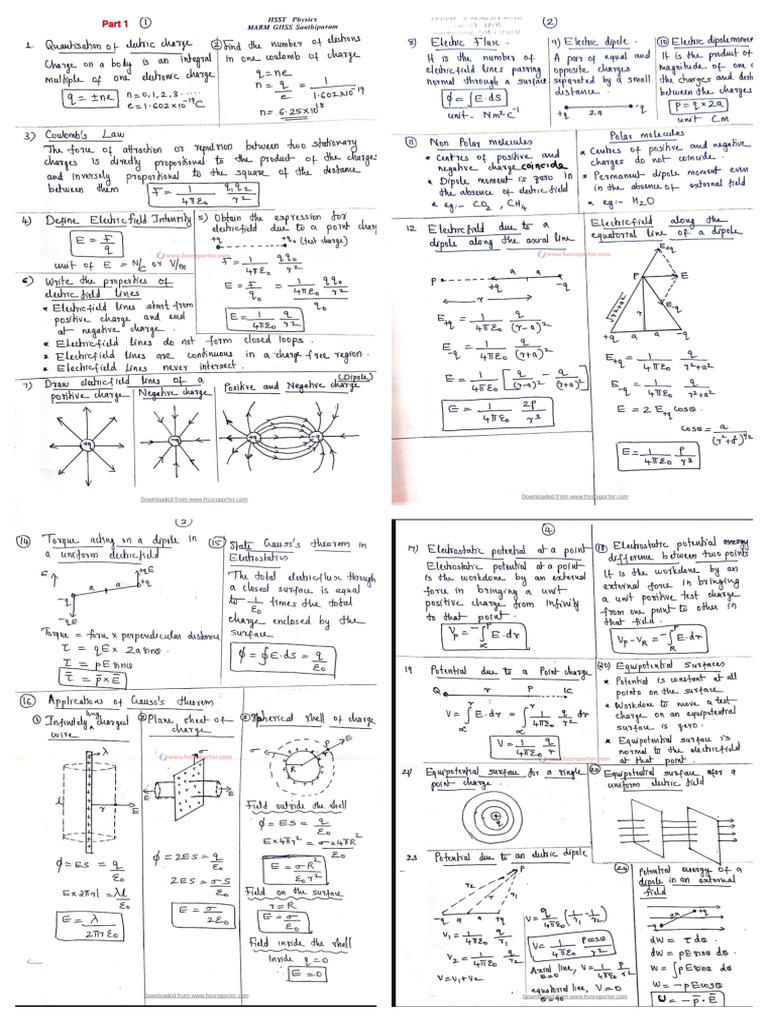 Part 1
①
HSST Physics
MARM GHSS Santhipuram
1. Quantisation of electric charge
Charge on a body is an integral
multiple of one electronic charge
q = ±ne
n = 0,1,2,3 .....
e = 1.602×10⁻¹⁹C
② Find the number of electrons
in one coulomb of charge
q = ne
n = q/e = 1/1.602×10⁻¹⁹
n = 6.25×10¹⁸
3) Coulomb's Law
The force of attraction or repulsion between two stationary
charges is directly proportional to the product of the charges
and inversely proportional to the square of the distance
between them
F = 1/4πε₀ q₁q₂/r²
4) Define Electricfield Intensity
E = F/q
unit of E = N/C or V/m
5) Obtain the expression for
electricfield due to a point charg
+q
+q₀ (test charge)
F = 1/4πε₀ qq₀/r²
E = F/q₀ = 1/4πε₀ qq₀/r²
q₀
E = 1/4πε₀ q/r²
6) Write the properties of
electric field lines
* Electricfield lines start from
positive charge and end
at negative charge.
* Electricfield lines do not form closed loops.
* Electricfield lines are continuous in a charge free region.
* Electricfield lines never intersect.
7) Draw electricfield lines of a
positive charge
Negative charge
Positive and Negative charge
(Dipole)
+q
-q
+q
-q
Downloaded from www.hssreporter.com
②
8) Electric Flux.
It is the number of
electricfield lines passing
normal through a surface
ϕ = ∫E.ds
unit - Nm²C⁻¹
9) Electric dipole.
A pair of equal and
opposite charges
separated by a small
distance.
+q
2a
-q
⑩ Electric dipole momen
It is the product of
magnitude of one
the charges and dist
between the charges
P = q×2a
unit Cm
⑪ Non Polar molecules
* Centres of positive and
negative charge coincide
* Dipole moment is zero in
the absence of electric field
* eg:- CO₂, CH₄
Polar molecules
* Centres of positive and negative
charges do not coincide.
* Permanent dipole moment even
in the absence of external field
* eg:- H₂O
12 Electricfield due to a
dipole along the axial line
www.hssreporter.com
P
a
a
+q
-q
r
E+q = 1/4πε₀ q/(r-a)²
E-q = 1/4πε₀ q/(r+a)²
E = 1/4πε₀ [q/(r-a)² - q/(r+a)²]
E = 1/4πε₀ 2P/r³
Electricfield along the
equatorial line of a dipole
www.hssreporter.com
E+q
P
E
E-q
√r²+a²
r
+q
a
a
-q
E+q = 1/4πε₀ q/r²+a²
E-q = 1/4πε₀ q/r²+a²
E = 2E+q cosθ.
cosθ = a/(r²+a²)^1/2
E = 1/4πε₀ P/r³
Downloaded from www.hssreporter.com
⑭ Torque acting on a dipole in
a uniform electricfield
E
+qE
a
a
+q
-q
-qE
Torque = force × perpendicular distance
τ = qE × 2a sinθ
τ = pE sinθ
τ̅ = p̅ × E̅
⑮ State Gauss's theorem in
Electrostatics
The total electricflux through
a closed surface is equal
to 1/ε₀ times the total
charge enclosed by the
surface
ϕ = ∮E.ds = q/ε₀
⑯ Applications of Gauss's theorem
① Infinitely long charged
wire
λ
l
r
E
ϕ = ES = q/ε₀
E×2πrl = λl/ε₀
E = λ/2πrε₀
② Plane sheet of
charge
www.hssreporter.com
σ
E
E
ϕ = 2ES = q/ε₀
2ES = σS/ε₀
E = σ/2ε₀
③ Spherical shell of charge
σ
r
P
E
R
Field outside the shell
ϕ = ES = q/ε₀
E×4πr² = σ×4πR²/ε₀
E = σR²/ε₀r²
Field on the surface
r = R
E = σ/ε₀
Field inside the shell
Inside q = 0
E = 0
Downloaded from www.hssreporter.com
④
17) Electrostatic potential at a point
Electrostatic potential at a point
is the workdone by an external
force in bringing a unit
positive charge from infinity
to that point.
Vp = -∫E.dr
⑱ Electrostatic potential energy
difference between two points
It is the workdone by an
external force in bringing
a unit positive test charge
from one point to other in
that field.
Vp - VR = -∫E.dr
19 Potential due to a Point charge
Q
r
P
1C
V = ∫E.dr = ∫1/4πε₀ q/r² dr
V = 1/4πε₀ q/r
www.hssreporter.com
⑳ Equipotential surfaces
* Potential is constant at all
points on the surface
* Workdone to move a test
charge on an equipotential
surface is zero.
* Equipotential surface is
normal to the electricfield
at that point.
21) Equipotential surface for a single
point charge
+q
㉒ Equipotential surface for a
uniform electric field
23 Potential due to an electric dipole
P
r₂
r
r₁
-q
a
a
+q
V₁ = 1/4πε₀ q/r₁
V₂ = 1/4πε₀ q/r₂
V = V₁+V₂
V = q/4πε₀ (1/r₁ - 1/r₂)
V = 1/4πε₀ Pcosθ/r²
Axial line, V = 1/4πε₀ P/r²
θ=0
equatorial line, V = 0
θ=90
㉔ Potential energy of a
dipole in an external
field
2a
+q
-q
dW = τ dθ.
dW = pE sinθ dθ
W = ∫pE sinθ dθ
W = -pE cosθ
U = -p̅.E̅
Downloaded from www.hssreporter.com